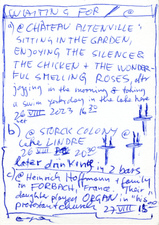 WAITING FOR
a) @ CHÂTEAU ALTENVILLE:
SITTING IN THE GARDEN,
ENJOYING THE SILENCE &
THE CHICKEN & THE WONDER-
FUL SMELLING ROSES, after
jogging in the morning & taking
a swim yesterday in the lake here
26 VIII 2023 16 20
b) @ STORCK COLONY @
LINDRE
26 VIII 20 20
later drinking in 2 bars
c) @ Heinrich Hoffmann + family
in FORBACH, France. Their
daughter played ORGAN in
protestant church 27 VIII